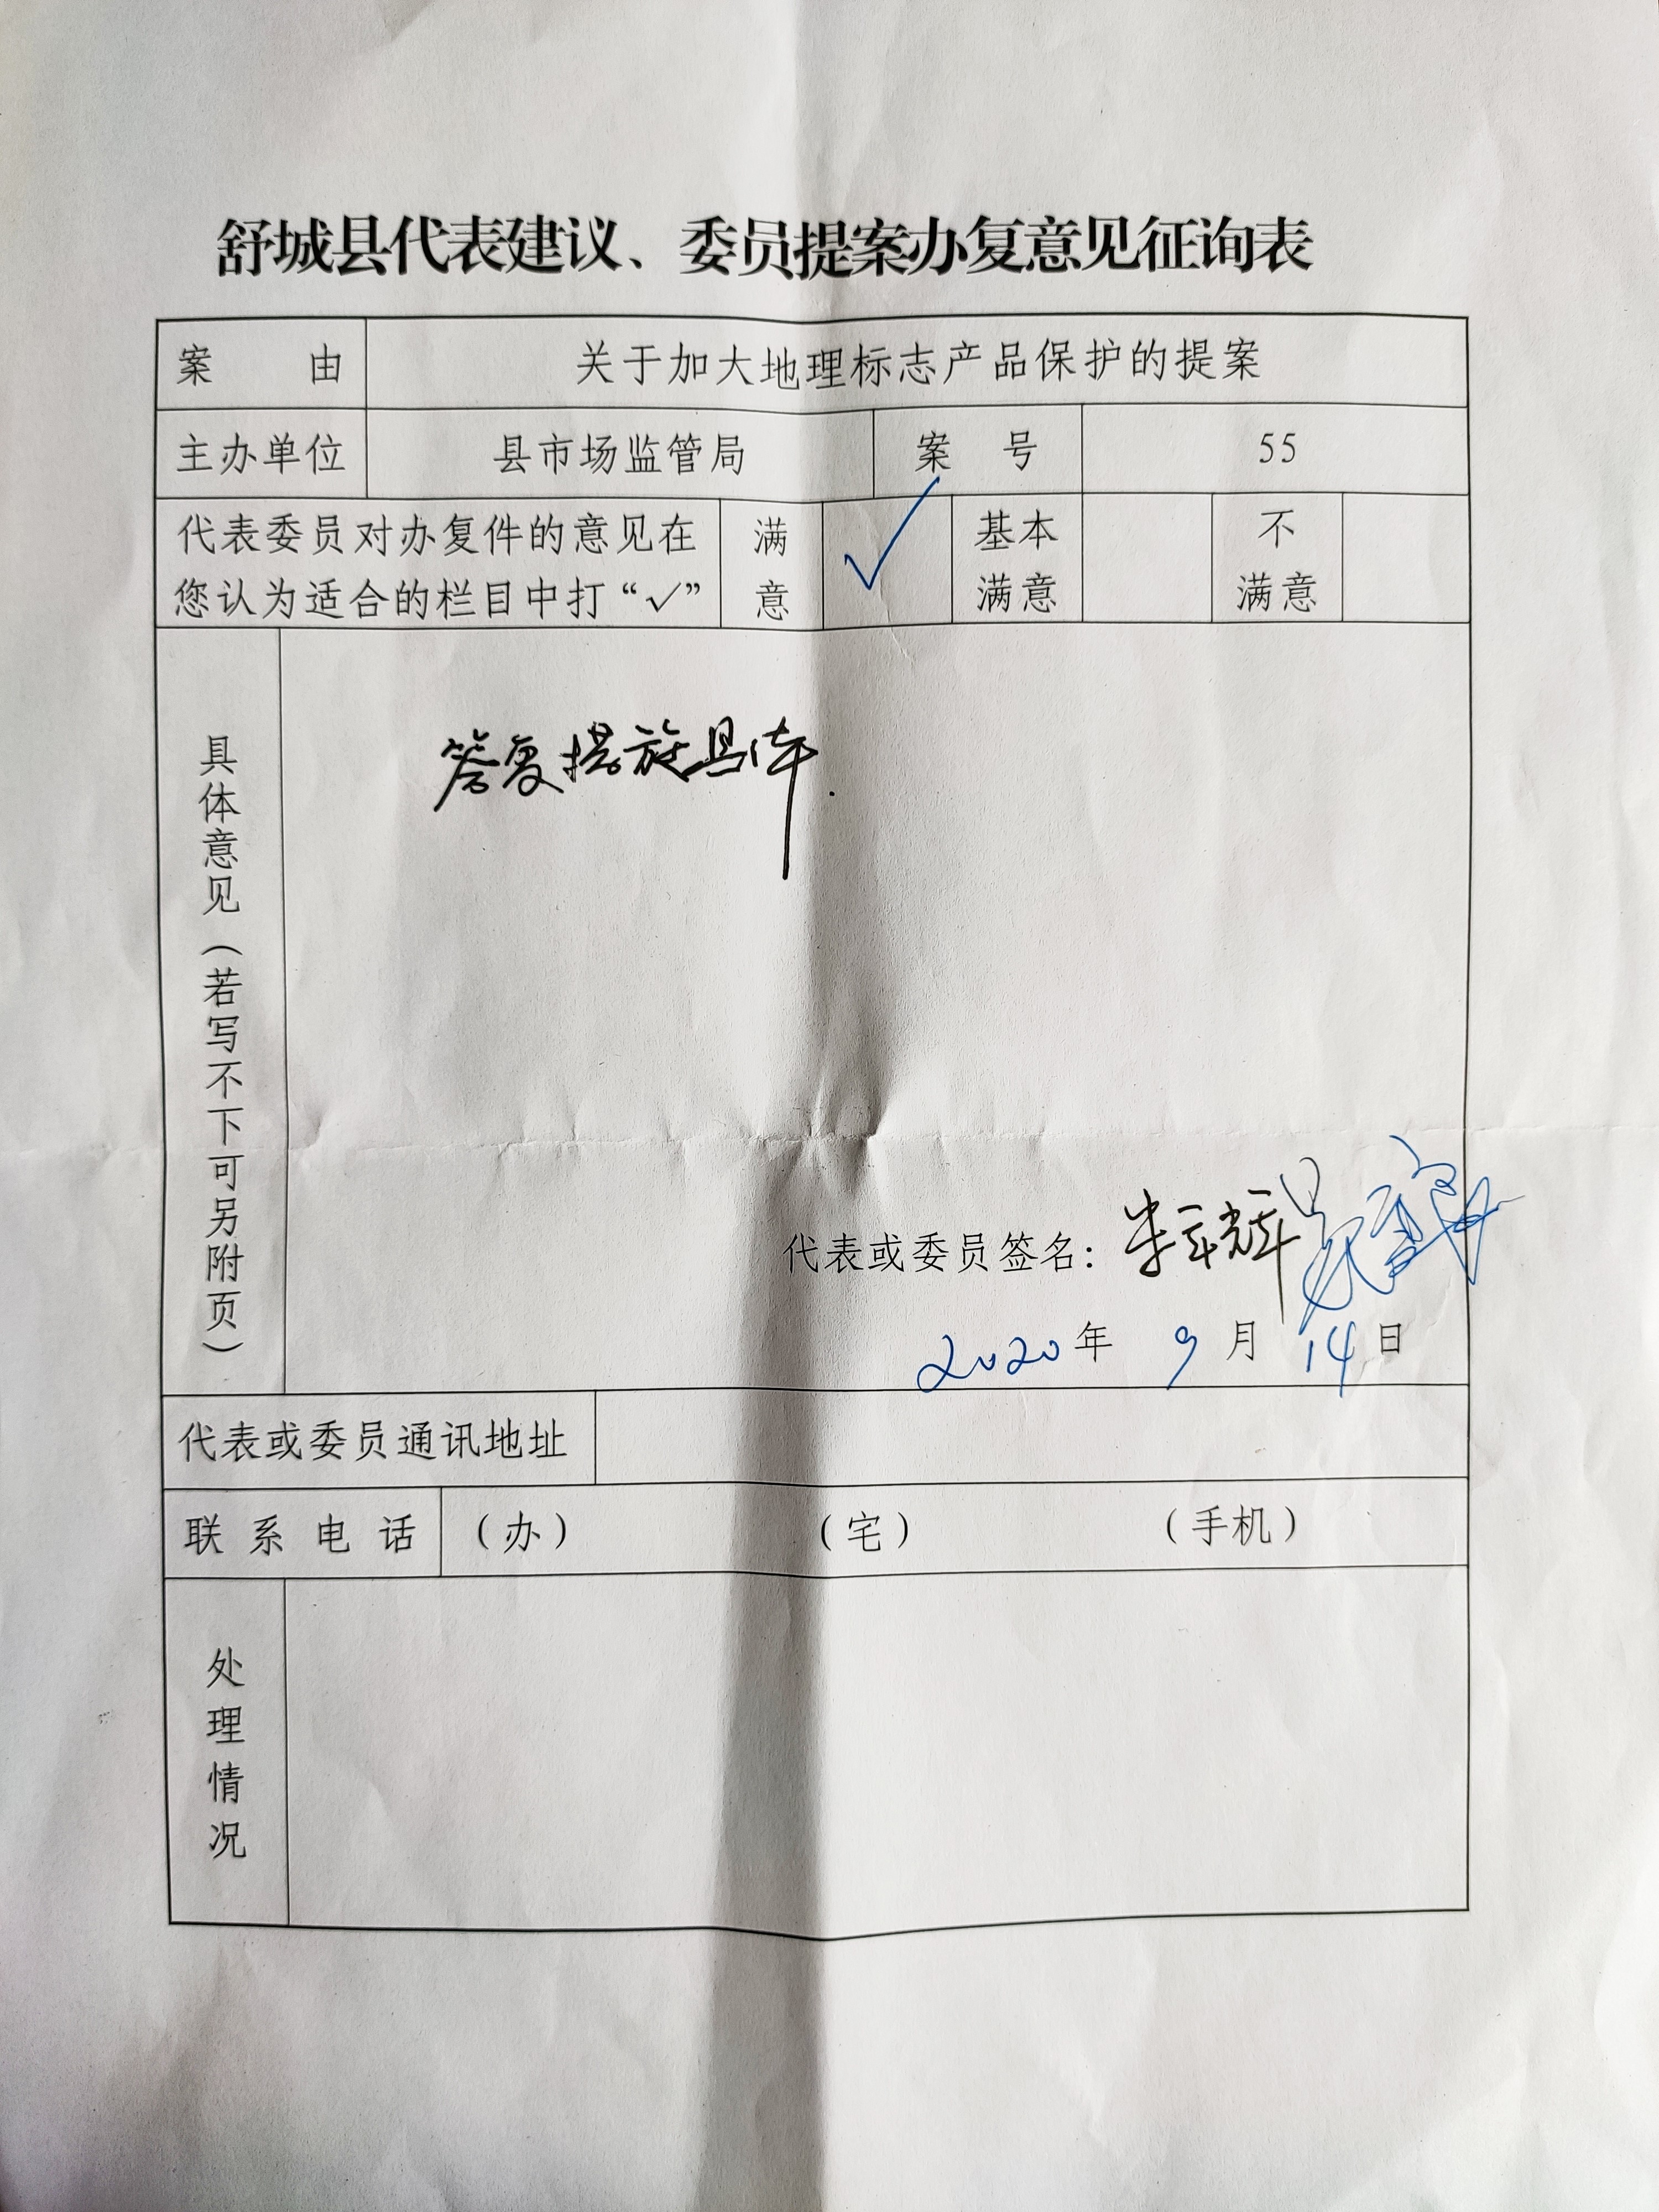 舒城县代表建议、委员提案办复意见征询表
案 由 关于加大地理标志产品保护的提案
主办单位 县市场监管局 案 号 55
代表委员对办复件的意见在
您认为适合的栏目中打“√” 满意 √ 基本满意 不满意
具体意见（若写不下可另附页）
答复措施具体.
代表或委员签名：
2020年 9月 14日
代表或委员通讯地址
联系电话 （办） （宅） （手机）
处理情况